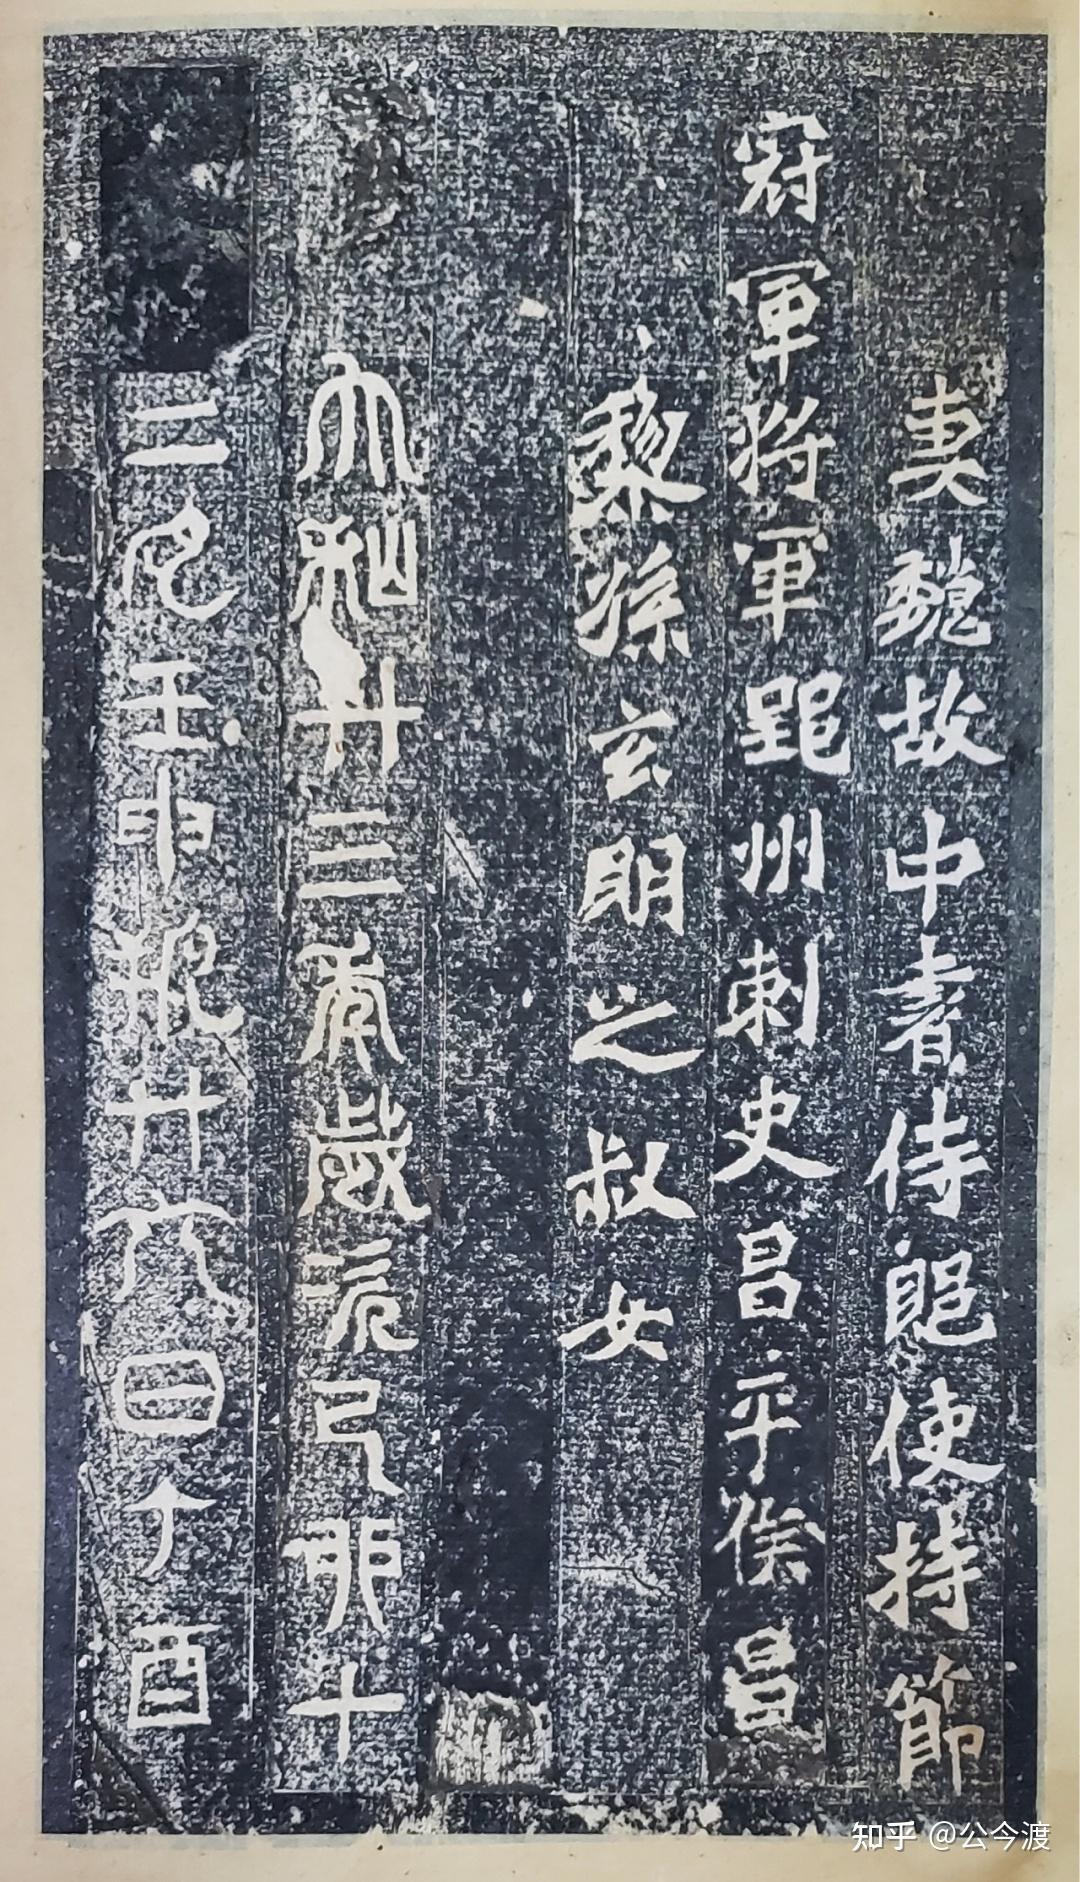 妻魏故中書侍郎使持節
冠軍將軍郢州刺史昌平侯昌
黎孫玄明之叔女
太和廿三年歲次己卯十
二月壬申朔廿六日丁酉
知乎 @公今渡